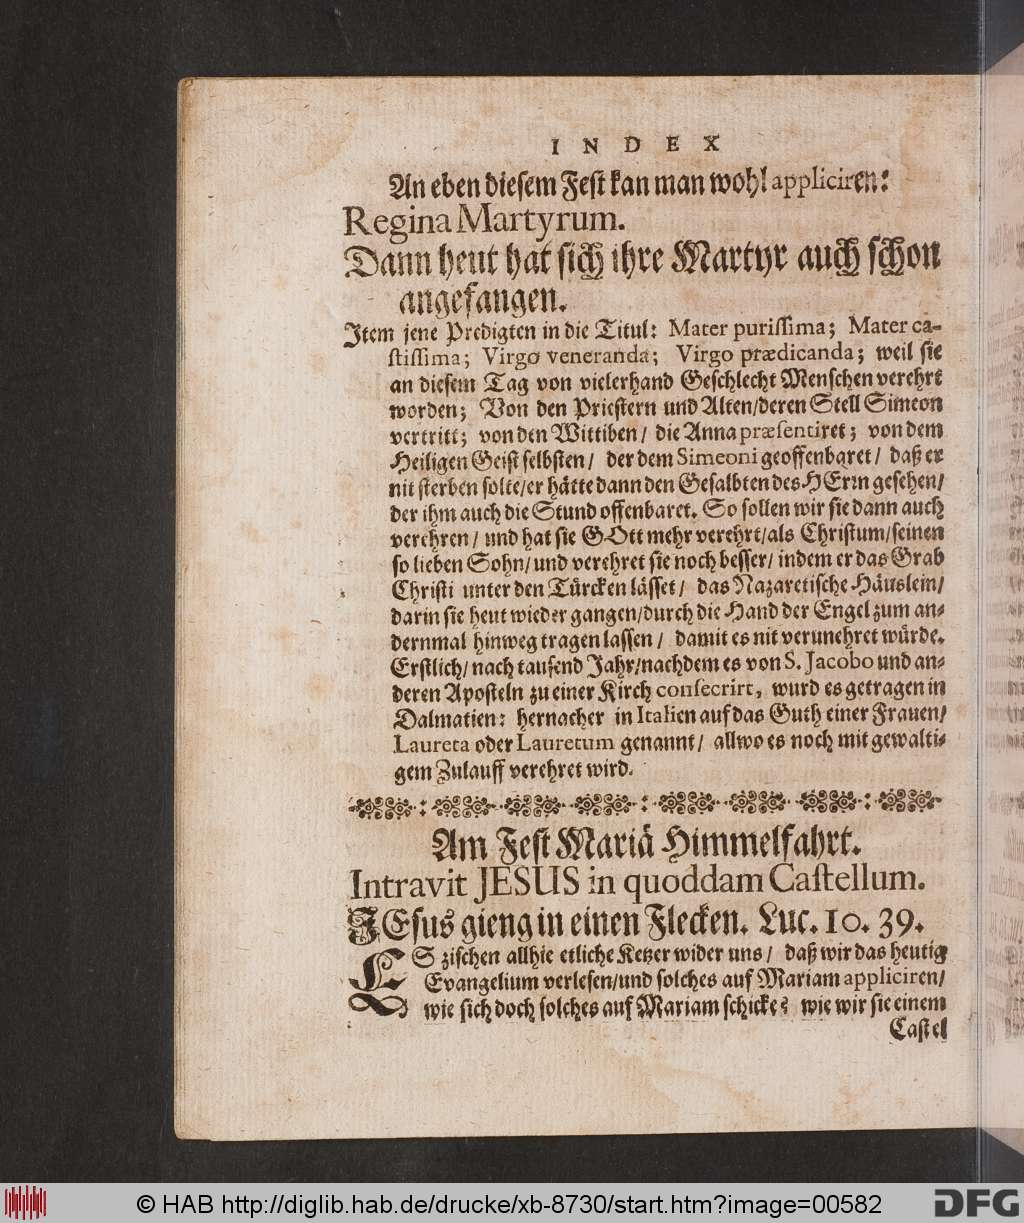 INDEX
An eben diesem Fest kan man wohl appliciren:
Regina Martyrum.
Dann heut hat sich ihre Martyr auch schon
angefangen.
Item jene Predigten in die Titul: Mater purissima; Mater ca-
stissima; Virgo veneranda; Virgo prædicanda; weil sie
an diesem Tag von vielerhand Geschlecht Menschen verehrt
worden; Von den Priestern und Alten/deren Stell Simeon
vertritt; von den Wittiben/ die Anna præsentiret; von dem
Heiligen Geist selbsten/ der dem Simeoni geoffenbaret/ daß er
nit sterben solte/er hätte dann den Gesalbten des HErrn gesehen/
der ihm auch die Stund offenbaret. So sollen wir sie dann auch
verehren/ und hat sie GOtt mehr verehrt/als Christum/seinen
so lieben Sohn/ und verehret sie noch besser/ indem er das Grab
Christi unter den Türcken lässet/ das Nazaretische Häuslein/
darin sie heut wieder gangen/durch die Hand der Engel zum an-
dernmal hinweg tragen lassen/ damit es nit verunehret würde.
Erstlich/ nach tausend Jahr/nachdem es von S. Jacobo und an-
deren Aposteln zu einer Kirch consecrirt, wurd es getragen in
Dalmatien: hernacher in Italien auf das Guth einer Frauen/
Laureta oder Lauretum genannt/ allwo es noch mit gewalti-
gem Zulauff verehret wird.
Am Fest Mariä Himmelfahrt.
Intravit JESUS in quoddam Castellum.
JEsus gieng in einen Flecken. Luc. 10. 39.
ES zischen allhie etliche Ketzer wider uns/ daß wir das heutig
Evangelium verlesen/und solches auf Mariam appliciren/
wie sich doch solches auf Mariam schicke? wie wir sie einem
Castel
© HAB http://diglib.hab.de/drucke/xb-8730/start.htm?image=00582
DFG